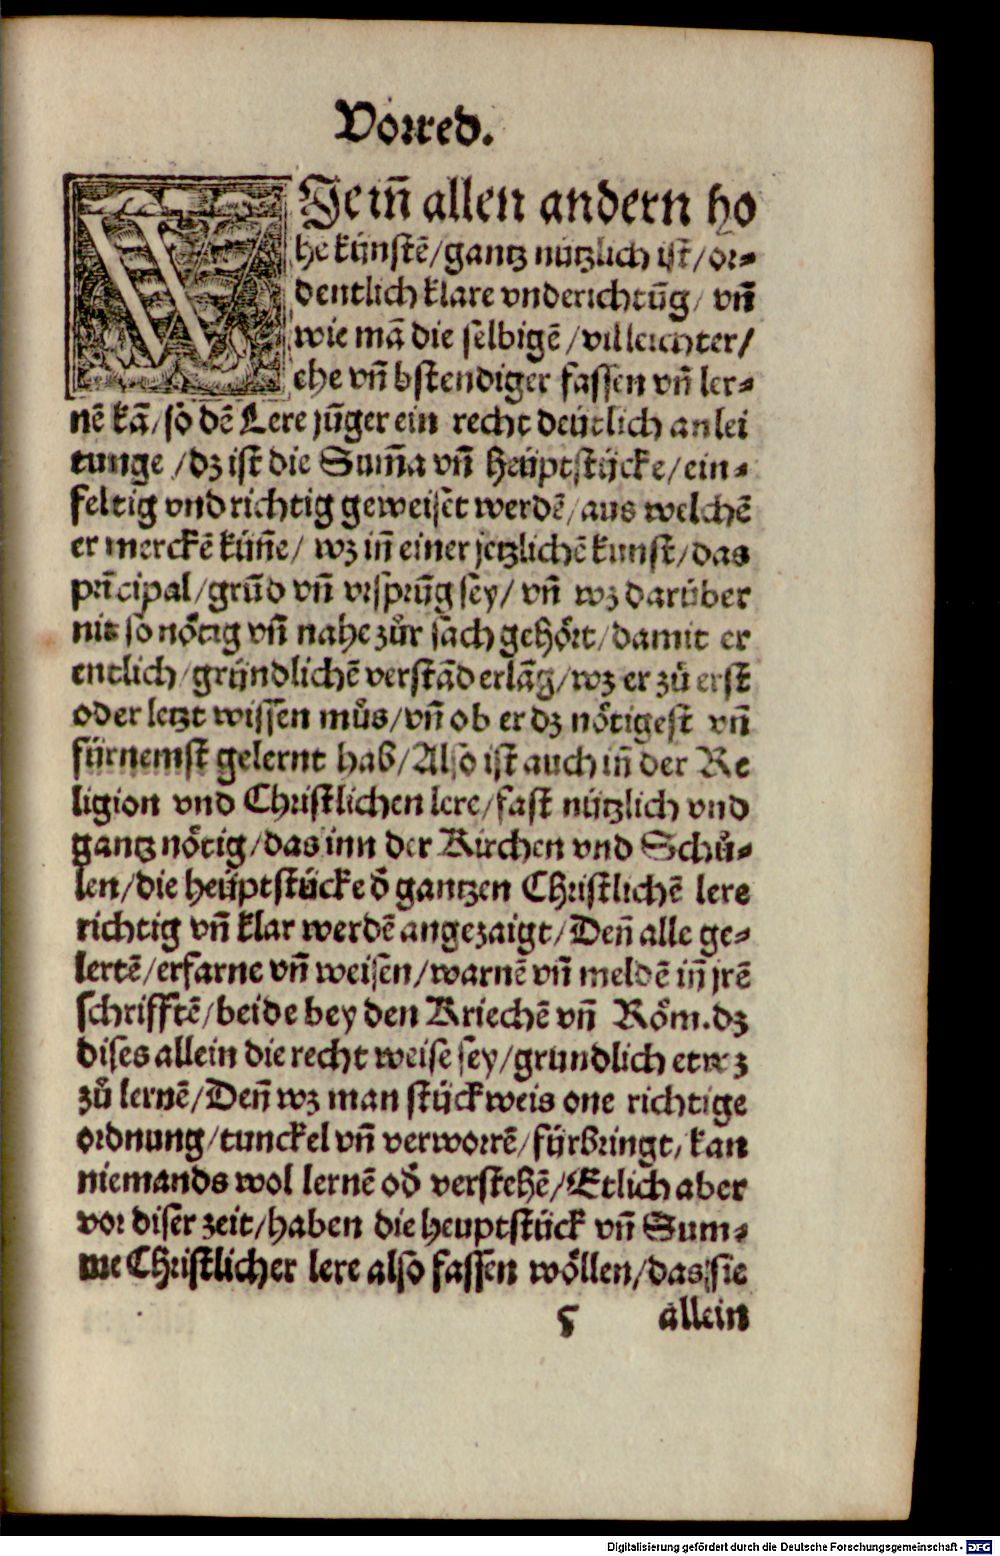 Vorred.
WJe iñ allen andern ho
he künstē/gantz nützlich ist/or-
dentlich klare vnderichtūg/ vñ
wie mā die selbigē/vil leichter/
ehe vñ bstendiger fassen vñ ler-
nē kā/so dē Lere jūger ein recht deütlich anlei
tunge /dz ist die Sum̄a vñ heüptstücke/ein-
feltig vnd richtig geweiset werdē/aus welchē
er merckē kün̄e/ wz iñ einer jetzlichē kunst/das
prīcipal/grūd vñ vrsprūg sey/ vñ wz darüber
nit so nötig vñ nahe zůr sach gehört/damit er
entlich/gründlichē verstād erlāg/wz er zů erst
oder letzt wissen můs/vñ ob er dz nötigest vñ
fürnemst gelernt hab/Also ist auch iñ der Re
ligion vnd Christlichen lere/fast nützlich vnd
gantz nötig/das inn der Kirchen vnd Schů-
len/die heüptstücke d̄ gantzen Christlichē lere
richtig vñ klar werdē angezaigt/Deñ alle ge-
lertē/erfarne vñ weisen/warnē vñ meldē iñ jrē
schrifftē/beide bey den Kriechē vñ Röm.dz
dises allein die recht weise sey/gründlich etwz
zů lernē/Deñ wz man stückweis one richtige
ordnung/tunckel vñ verworrē/fürbringt/kan
niemands wol lernē od̄ verstehē/Etlich aber
vor diser zeit/haben die heuptstück vñ Sum-
me Christlicher lere also fassen wöllen/das sie
ς allein
Digitalisierung gefördert durch die Deutsche Forschungsgemeinschaft - DFG